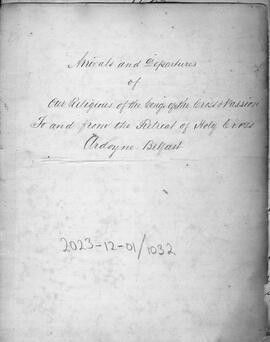 Arrivals and Departures
of
Our Religious of the Cong. of the Cross & Passion
To and from the Retreat of Holy Cross
Ardoyne Belfast
2023-12-01/1032